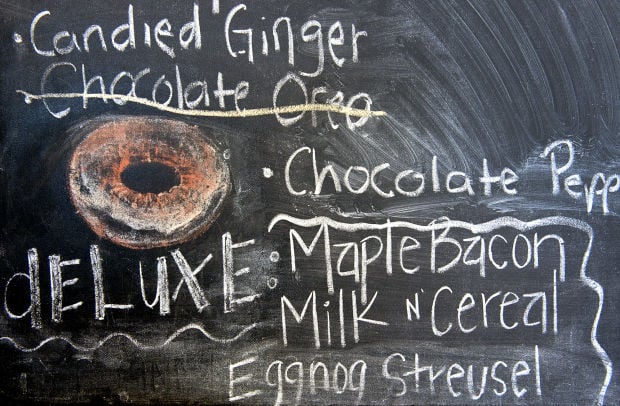 · Candied Ginger
Chocolate Oreo
· Chocolate Pepp
dELUXE: Maple Bacon
Milk N' Cereal
Eggnog Streusel